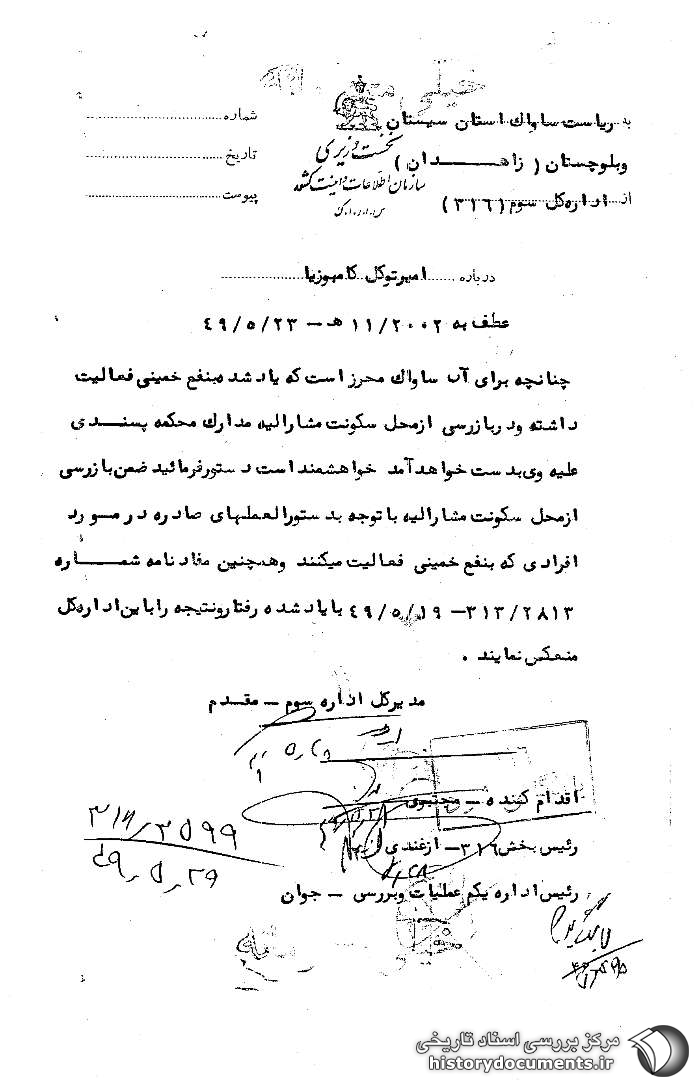 خیلی
به ریاست ساواك استان سیستان
وبلوچستان ( زاهـــــدان )
از اداره‌كل سوم (۳۱۶)
نخست وزیری
سازمان اطلاعات و امنیت کشور
س.ا.و.ا.ک
شماره
تاریخ
پیوست
درباره امیرتوكل كامبوزیا
عطف به ۱۱/۲۰۰۲ هـ – ۴۹/۵/۲۳
چنانچه برای آن ساواك محرز است كه یاد شده بنفع خمینی فعالیت
داشته ودربازرسی ازمحل سكونت مشارالیه مدارك محكمه پسنـــدی
علیه وی بدست خواهد آمد خواهشمند است دستورفرمائید ضمن بازرسی
ازمحل سكونت مشارالیه با توجه بدستورالعملهای صادره درمـورد
افرادی كه بنفع خمینی فعالیت میكنند وهمچنین مفاد نامه شمـــاره
۳۱۳/۲۸۱۳ – ۴۹/۵/۱۹ با یاد شده رفتارونتیجه را باین اداره‌كل
منعكس نمایند .
مدیركل اداره سوم – مقدم
اقدام كننده – مجتبوی
رئیس بخش ۳۱۶ – ازغندی
رئیس اداره یكم عملیات وبررسی – جوان
۳۱۶/۳۵۹۹
۴۹،۵،۲۹
مرکز بررسی اسناد تاریخی
historydocuments.ir